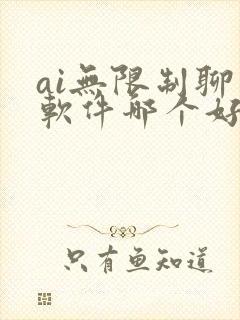 ai無限制聊
軟件哪个好
只有鱼知道